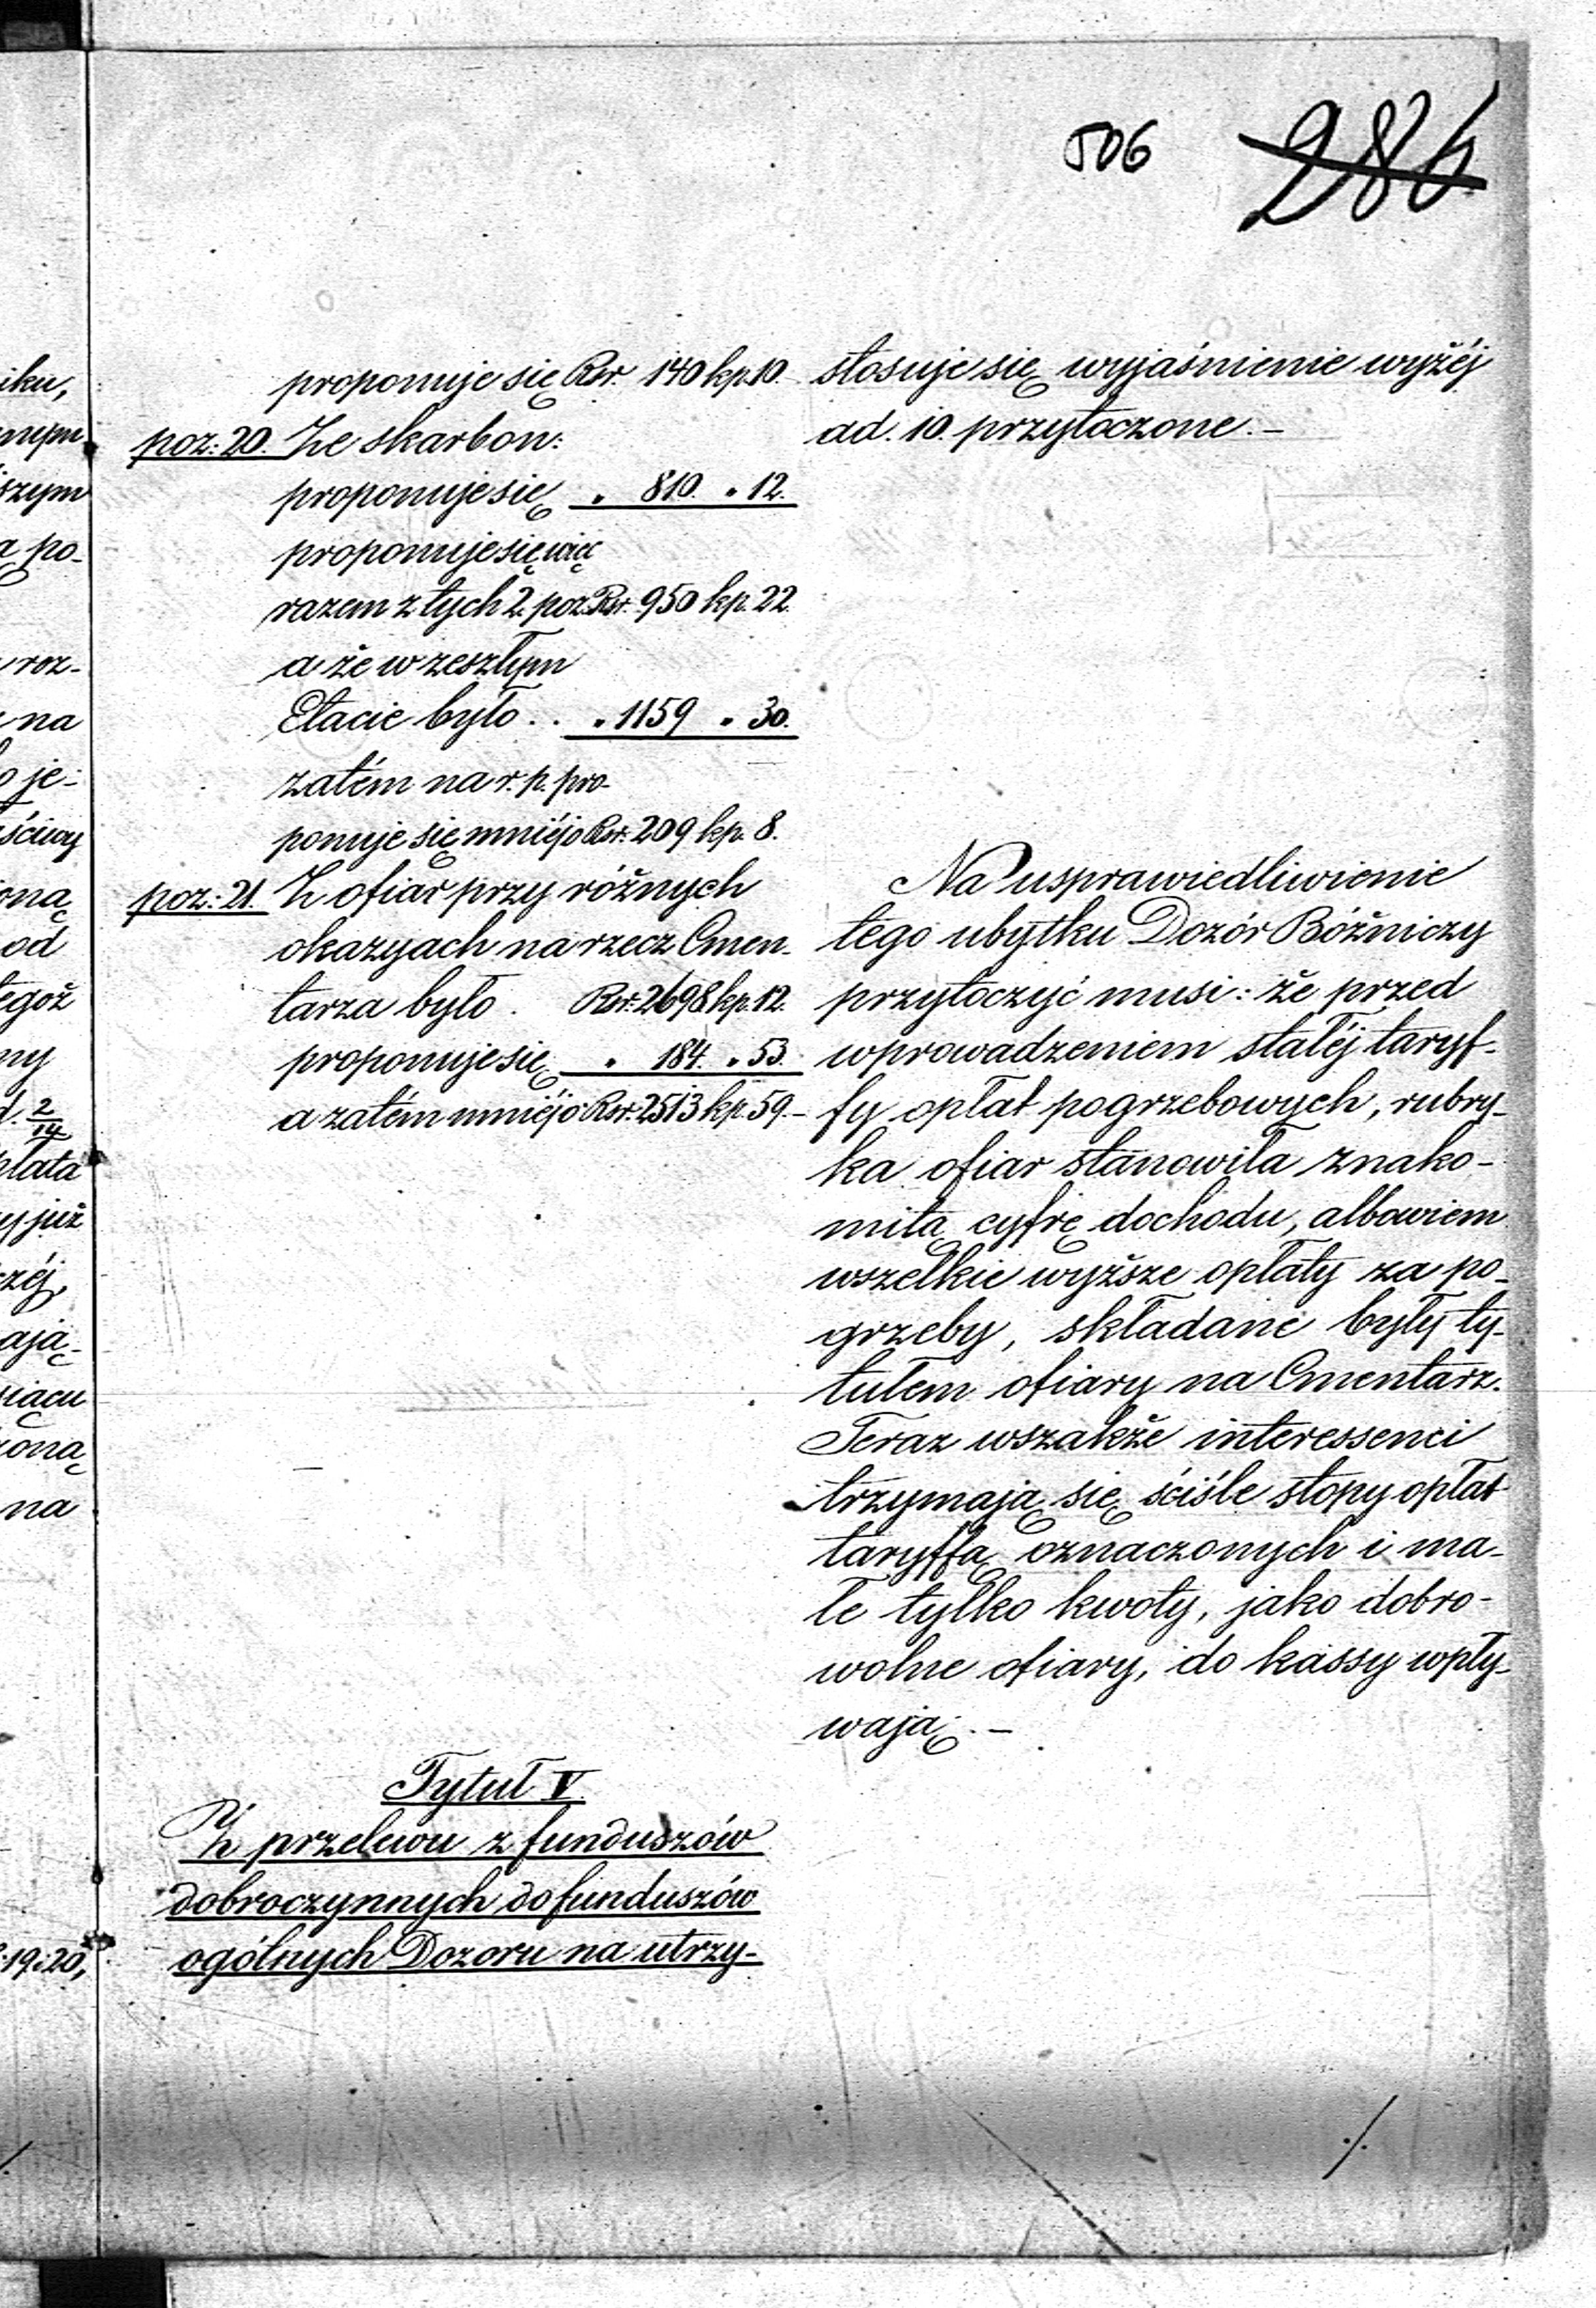 506 286
proponuje się Rsr. 140 kp. 10.
poz: 20. Ze skarbon:
proponuje się „ 810. „ 12.
proponuje się więc
razem z tych 2. poz. Rsr. 950 kp. 22.
a że w zeszłym
Etacie było . . „ 1159 „ 30.
zatém na r. p. pro-
ponuje się mniéj o Rsr. 209 kp. 8.
poz: 21. Z ofiar przy różnych
okazyach na rzecz Cmen-
tarza było . Rsr. 2698 kp. 12.
proponuje się „ 184. „ 53.
a zatém mniéj o Rsr. 2513 kp. 59.-
Tytuł V.
Z przelewu z funduszów
dobroczynnych do funduszów
ogólnych Dozoru na utrzy-
stosuje się wyjaśnienie wyżéj
ad. 10. przytoczone.-
Na usprawiedliwienie
tego ubytku Dozór Bóżniczy
przytoczyć musi: że przed
wprowadzeniem stałéj taryf-
fy opłat pogrzebowych, rubry-
ka ofiar stanowiła znako-
mitą cyfrę dochodu, albowiem
wszelkie wyższe opłaty za po-
grzeby, składane były ty-
tułem ofiary na Cmentarz.
Teraz wszakże interessenci
trzymają się ściśle stopy opłat
taryffą oznaczonych i ma-
łe tylko kwoty, jako dobro-
wolne ofiary, do kassy wpły-
wają.-
./.